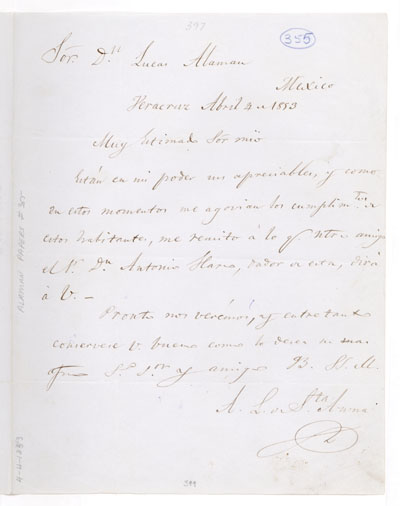 397
355
Sor. Dn. Lucas Alaman
Mexico
Veracruz Abril 4 de 1853
Muy Estimado Sor mio
Están en mi poder sus apreciables, y como
en estos momentos me agovian los cumplimtos. de
estos habitantes, me remito á lo q. ntro. amigo
el Sr. Dn. Antonio Haro, dador de esta, dirá
á V. —
Pronto nos verémos, y entre tanto
conservese V. bueno como lo desea su mas
afmo. S.S. y amigo Q. B. SS. M.
A. L. de Sta. Anna
ALAMAN PAPERS # 355
4-4-1853